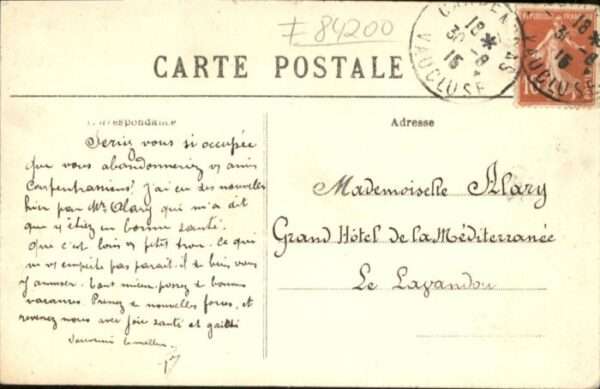 # 84200
CARPENTRAS
18 *
30 - 8
15
VAUCLUSE
CARTE POSTALE
Correspondance
Adresse
Seriez vous si occupée
que vous abandonneriez vs amis
Carpentrassiens? J'ai eu des nouvelles
hier par Mr Alary qui m'a dit
que vs étiez en bonne santé.
Que c'est loin vs petit trou. Ce qui
ne vs empêche pas paraît-il de bien vous
y amuser. Tant mieux. passez de bonnes
vacances. Prenez de nouvelles forces, et
revenez nous avec joie santé et gaîté
Souvenirs
Mademoiselle Alary
Grand Hôtel de la Méditerranée
Le Lavandou